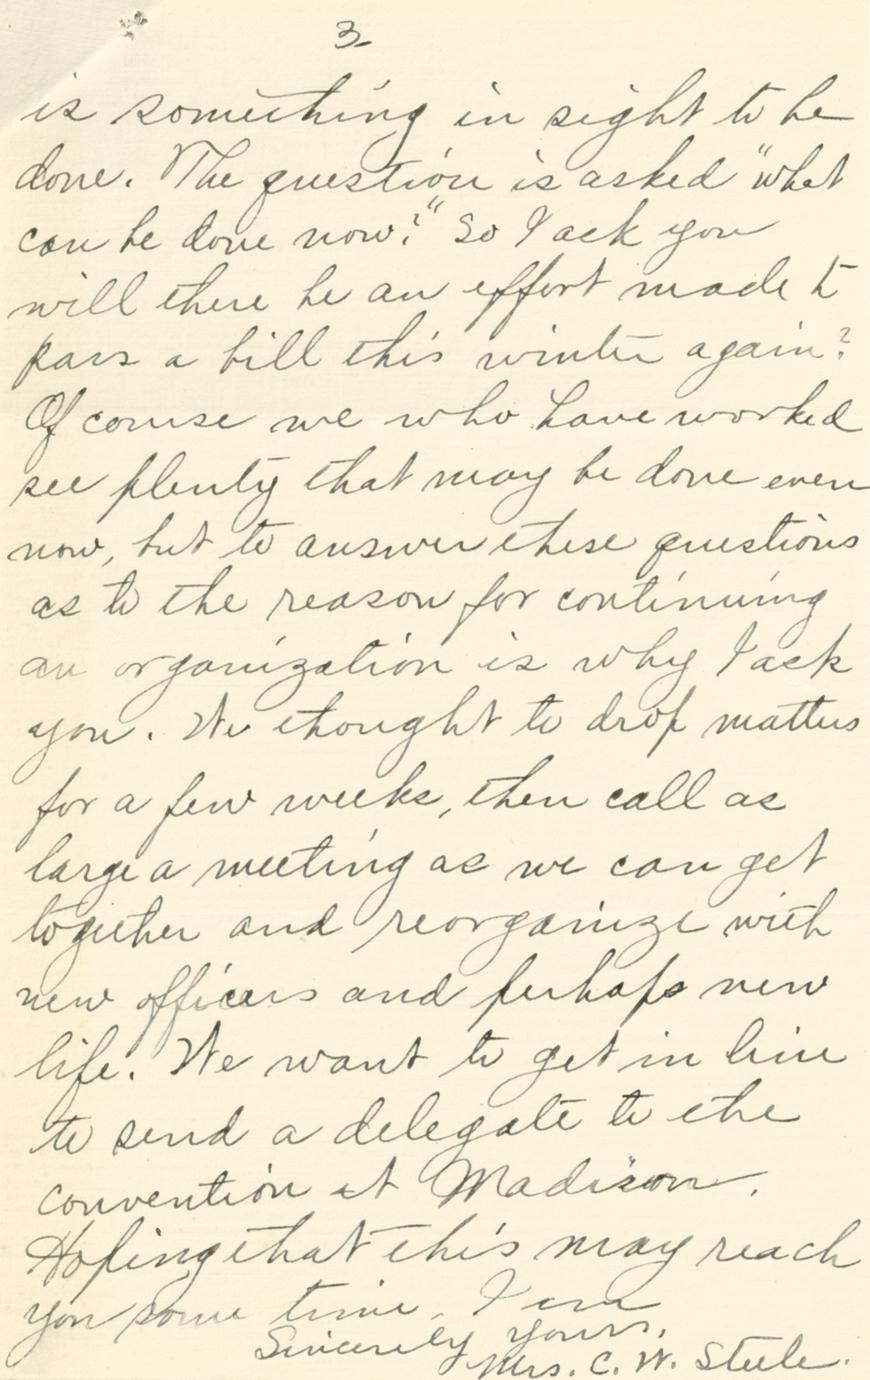 3
is something in sight to be
done. The question is asked "what
can be done now?" So I ask you
will there be an effort made to
pass a bill this winter again?
Of course we who have worked
see plenty that may be done even
now, but to answer these questions
as to the reason for continuing
an organization is why I ask
you. We thought to drop matters
for a few weeks, then call as
large a meeting as we can get
together and reorganize with
new officers and perhaps new
life. We want to get in line
to send a delegate to the
convention at Madison.
Hoping that this may reach
you some time, I am
Sincerely yours,
Mrs. C. W. Steele.